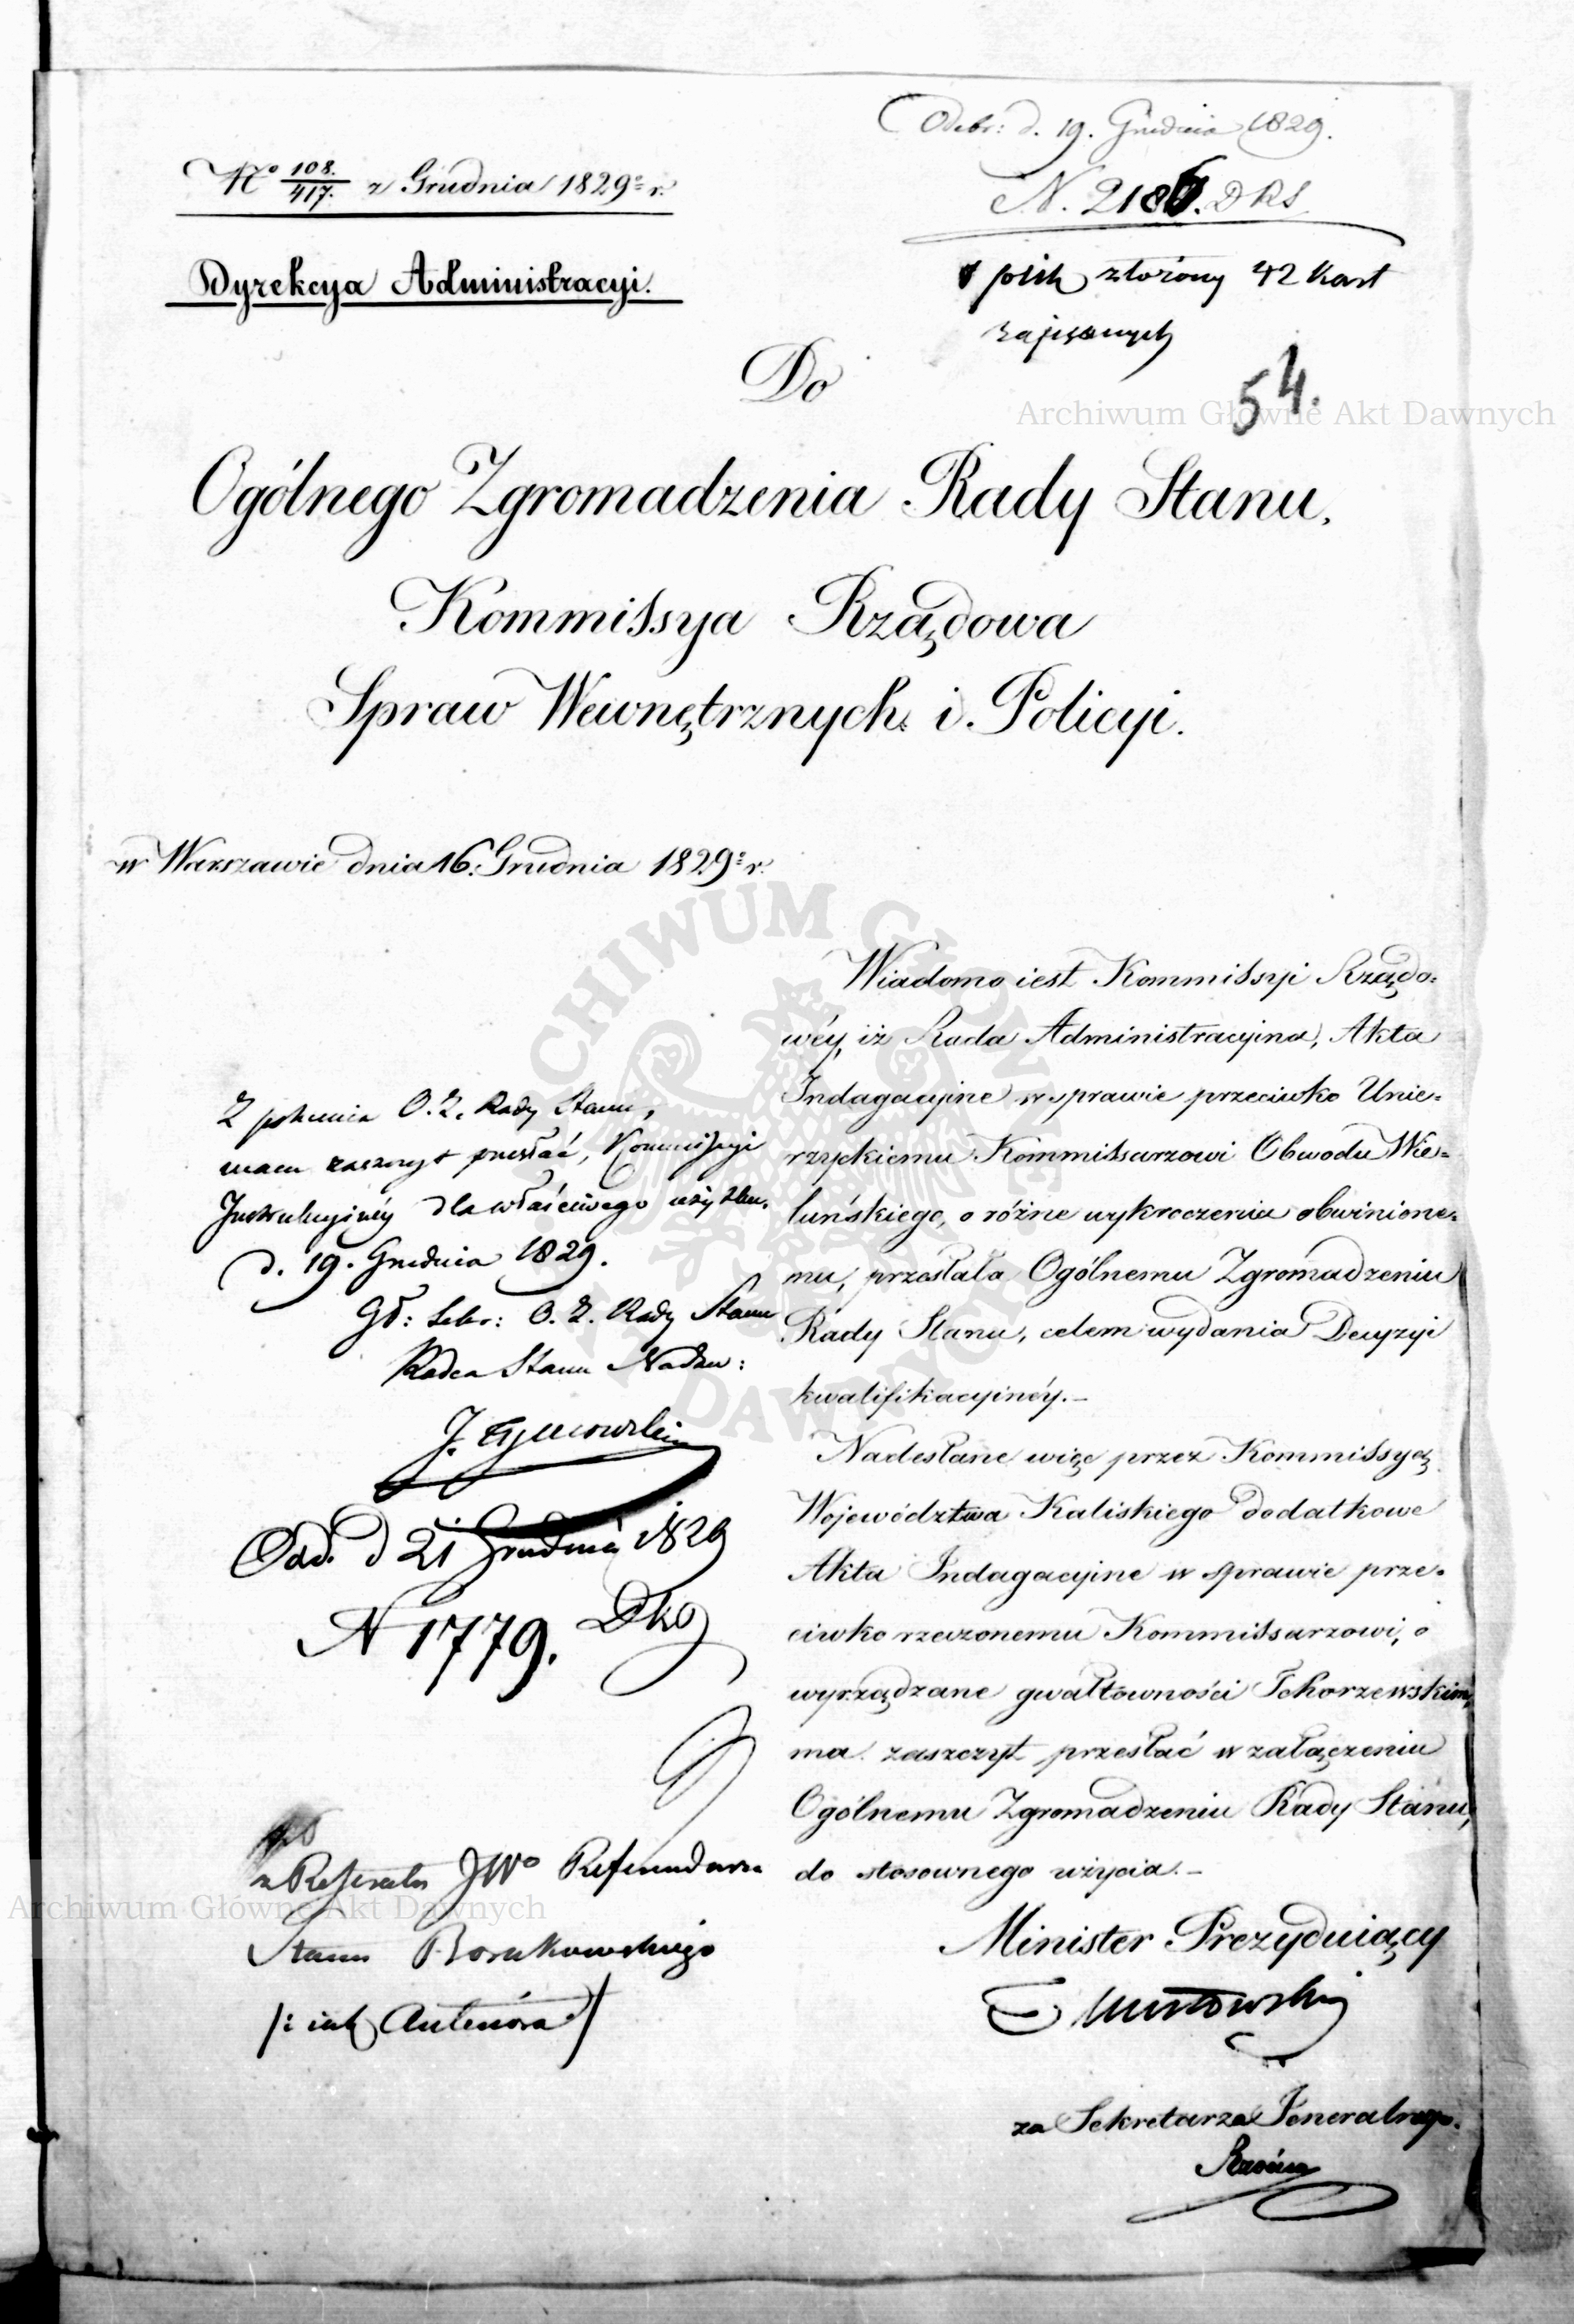 Odebr: d. 19. Grudnia 1829.
No 108./417. z Grudnia 1829o r.
N. 2186. DRS
Dyrekcya Administracyi.
plik złożony 42 kart
zapisanych
54.
Do
Ogólnego Zgromadzenia Rady Stanu.
Kommissya Rządowa
Spraw Wewnętrznych i Policyi.
w Warszawie dnia 16. Grudnia 1829o r.
Wiadomo iest Kommissyi Rządo=
wéy, iż Rada Administracyina, Akta
Indagacyine w sprawie przeciwko Unie=
rzyckiemu Kommissarzowi Obwodu Wie=
luńskiego, o różne wykroczenia obwinione=
mu, przesłała Ogólnemu Zgromadzeniu
Rady Stanu, celem wydania Decyzyi
kwalifikacyinéy.–
Nadesłane więc przez Kommissyą
Województwa Kaliskiego dodatkowe
Akta Indagacyine w sprawie prze=
ciwko rzeczonemu Kommissarzowi, o
wyrządzane gwałtowności Tchorzewskim,
ma zaszczyt przesłać w załączeniu
Ogólnemu Zgromadzeniu Rady Stanu,
do stosownego użycia.–
Minister Prezyduiący
za Sekretarza Jeneralnego.
Z polecenia O. Z. Rady Stanu,
mam zaszczyt przesłać, Kommissyi
Instrukcyinéy dla właściwego użytku.
d. 19. Grudnia 1829.
Gł: Sekr: O. Z. Rady Stanu
Radca Stanu Nadzw:
J. Tymowski
Odd. d 21 Grudnia 1829
N 1779.
z Referatu JWo Referendarza
Stanu Borakowskiego
/: iak Antenóra :/
Archiwum Główne Akt Dawnych
ARCHIWUM GŁÓWNE AKT DAWNYCH
Archiwum Główne Akt Dawnych